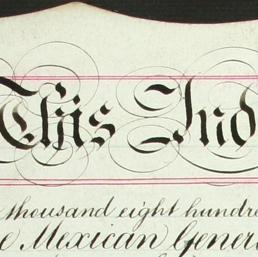 This Ind
thousand eight hundre
e Mexican Gener